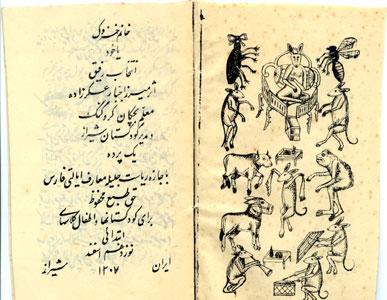 خانم خزوک
یا خود
انتخاب رفیق
اثر میرزا جبار عسکرزاده
معلم بچگان کر و گنگ
و مدیر کودکستان شیراز
یک پرده
با جازه ریاست جلیله معارف ایالتی فارس
حق طبع محفوظ
برای کودکستانها و اطفال کلاسهای
ابتدائی
نوزدهم اسفند
ایران ۱۳۰۷ شیراز